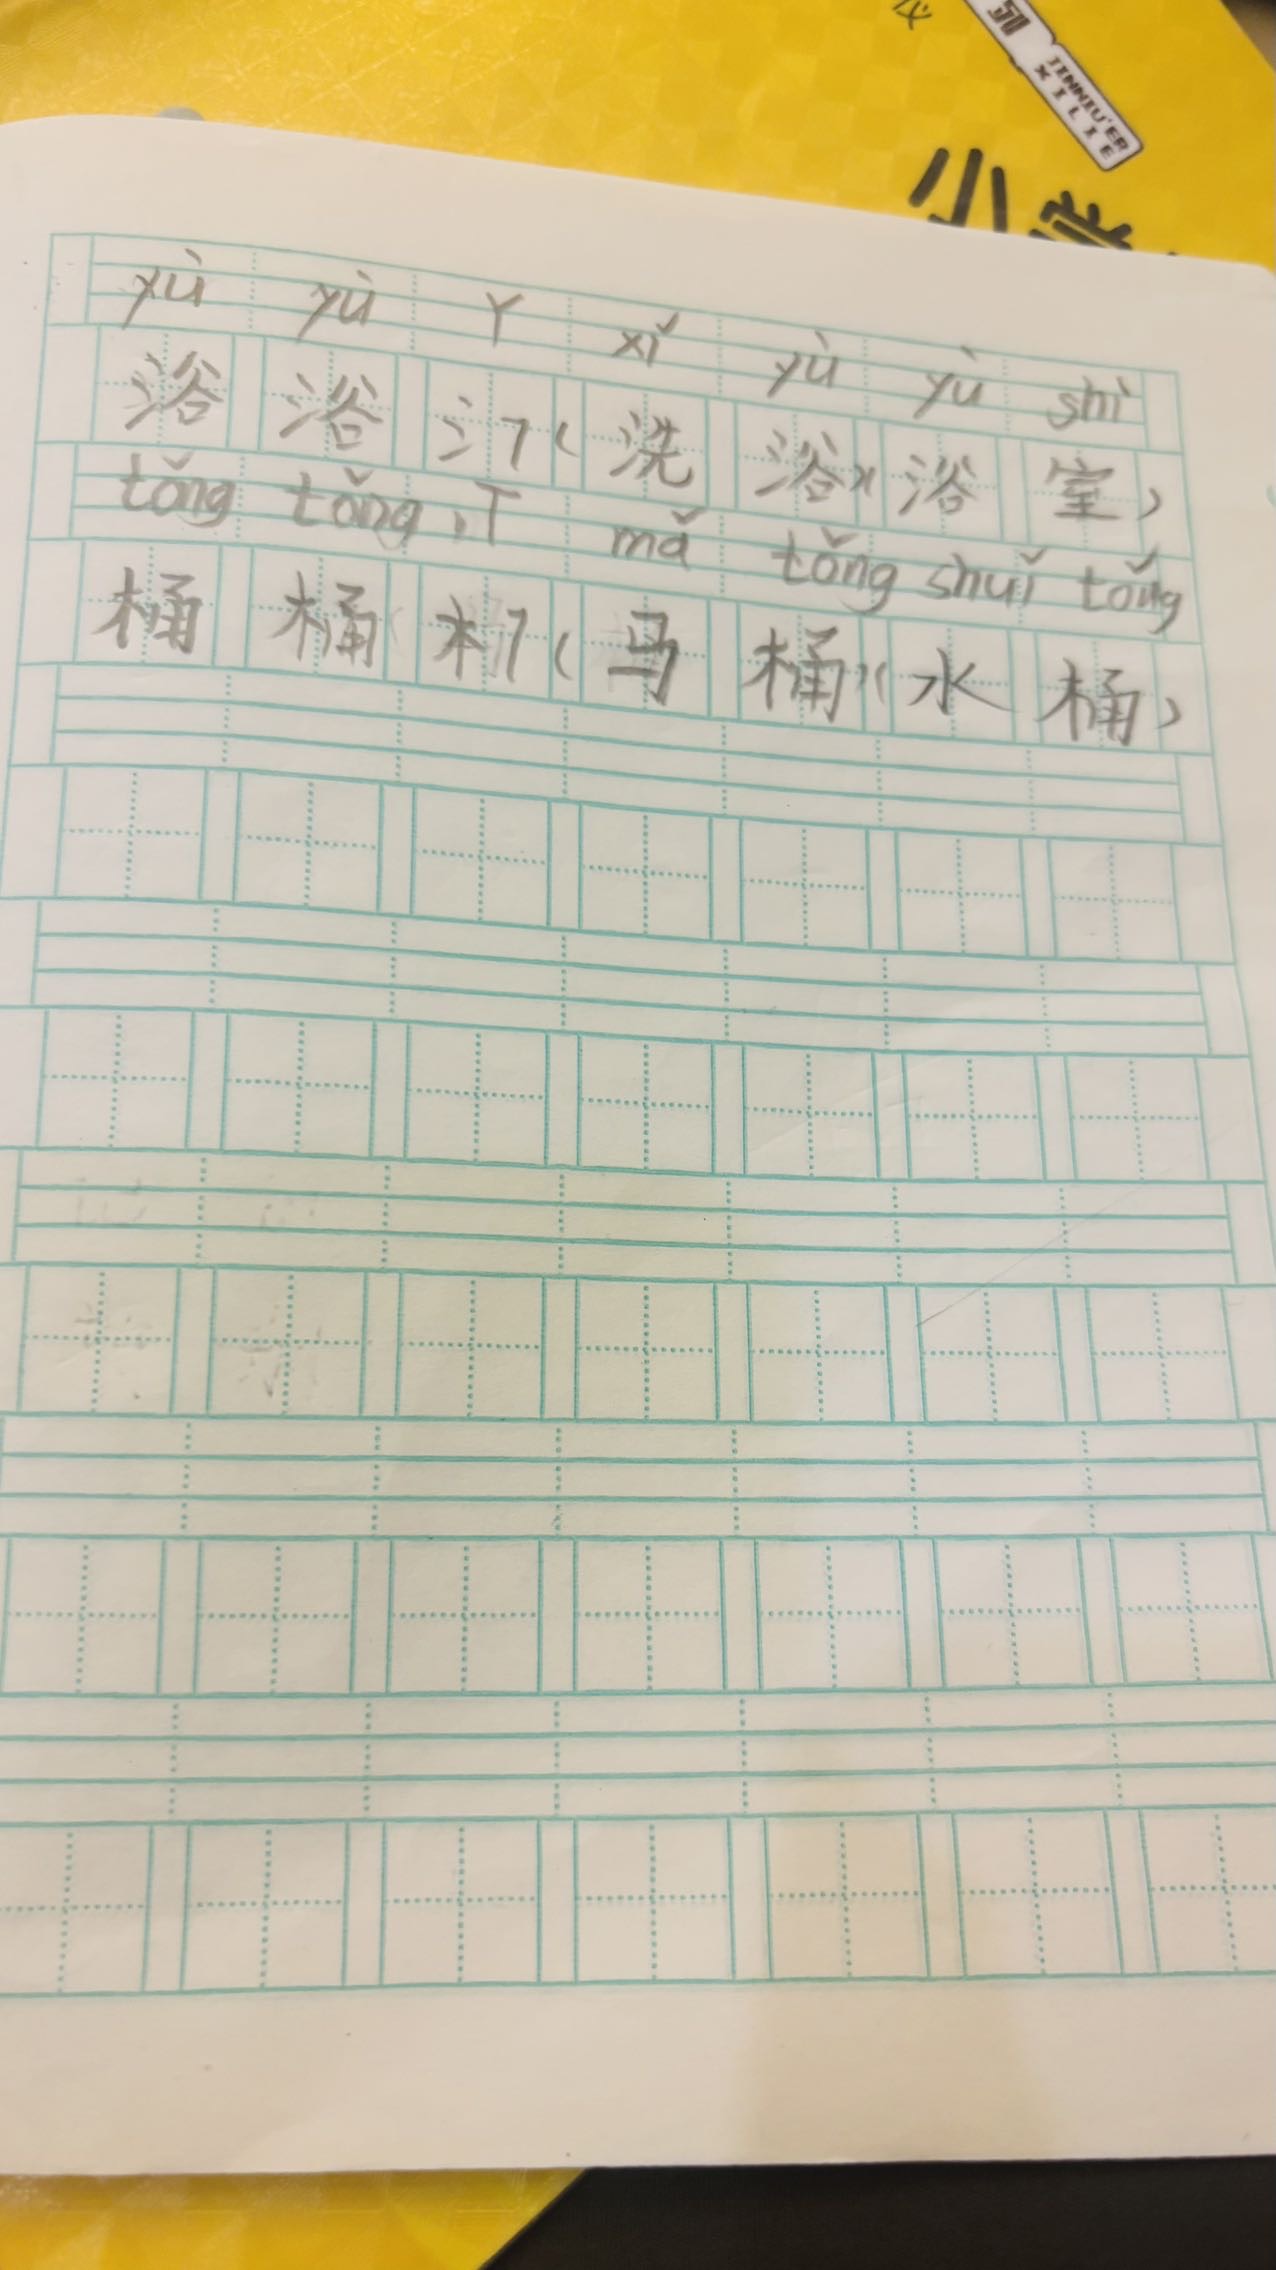 仪
列 JINNIU'ER
XILIE
小学
yù yù Y xǐ yù yù shì
浴 浴 氵7(洗 浴)(浴 室)
tǒng tǒng T mǎ tǒng shuǐ tǒng
桶 桶 木7(马 桶)(水 桶)